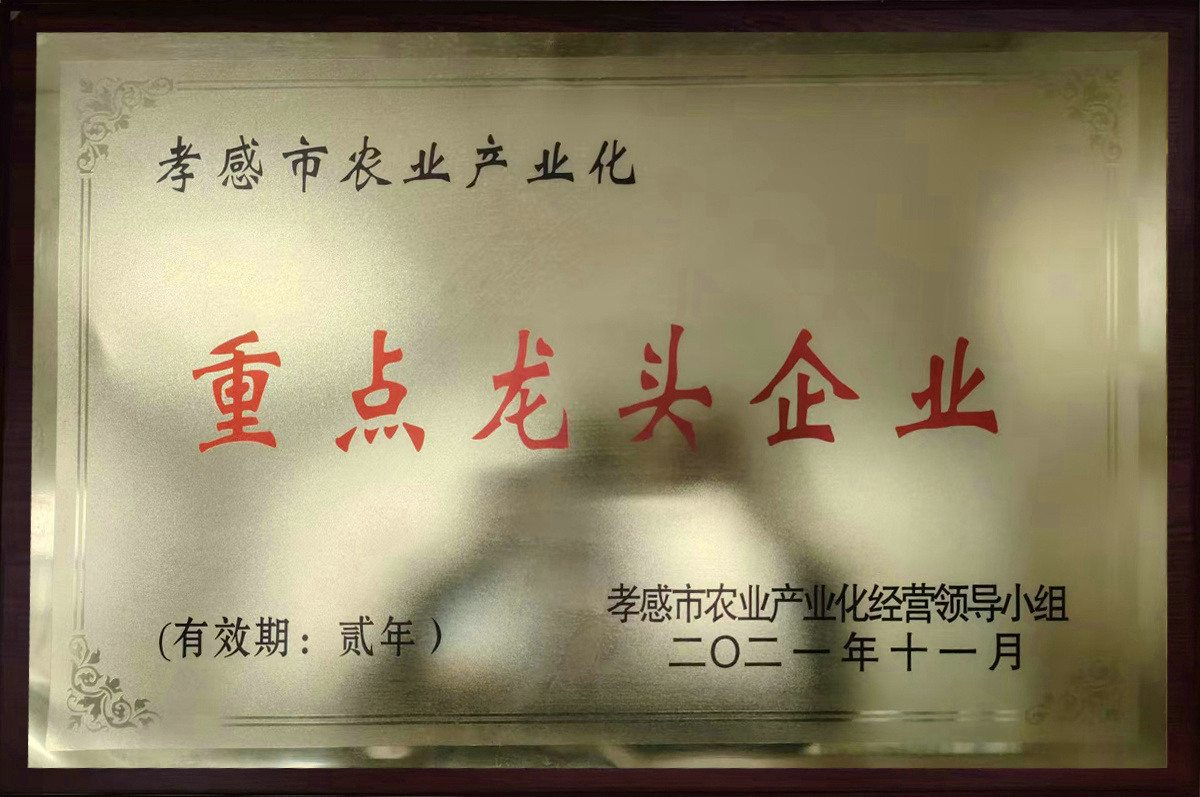 孝感市农业产业化
重点龙头企业
(有效期：贰年）
孝感市农业产业化经营领导小组
二〇二一年十一月